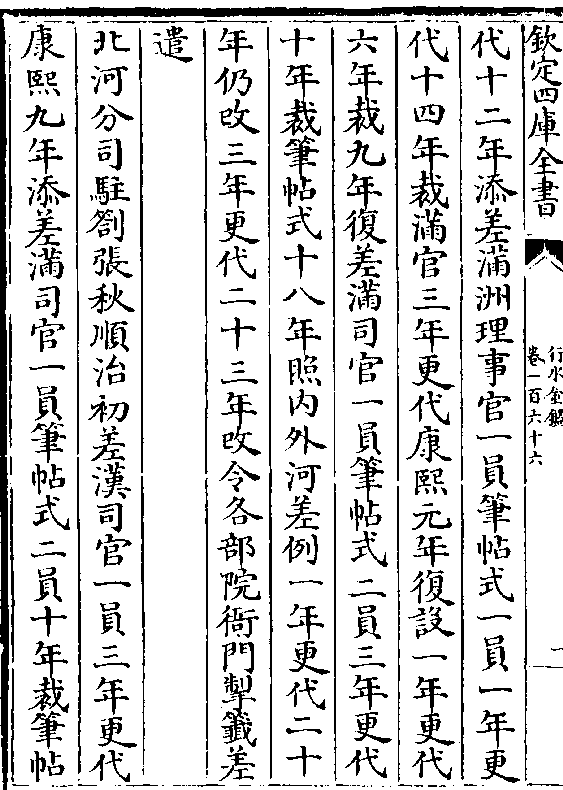 欽定四庫全書
行水金鑑
卷一百六十六
二
代十二年添差滿洲理事官一員筆帖式一員一年更
代十四年裁滿官三年更代康熙元年復設一年更代
六年裁九年復差滿司官一員筆帖式二員三年更代
十年裁筆帖式十八年照內外河差例一年更代二十
年仍改三年更代二十三年改令各部院衙門掣籤差
遣
北河分司駐劄張秋順治初差漢司官一員三年更代
康熙九年添差滿司官一員筆帖式二員十年裁筆帖